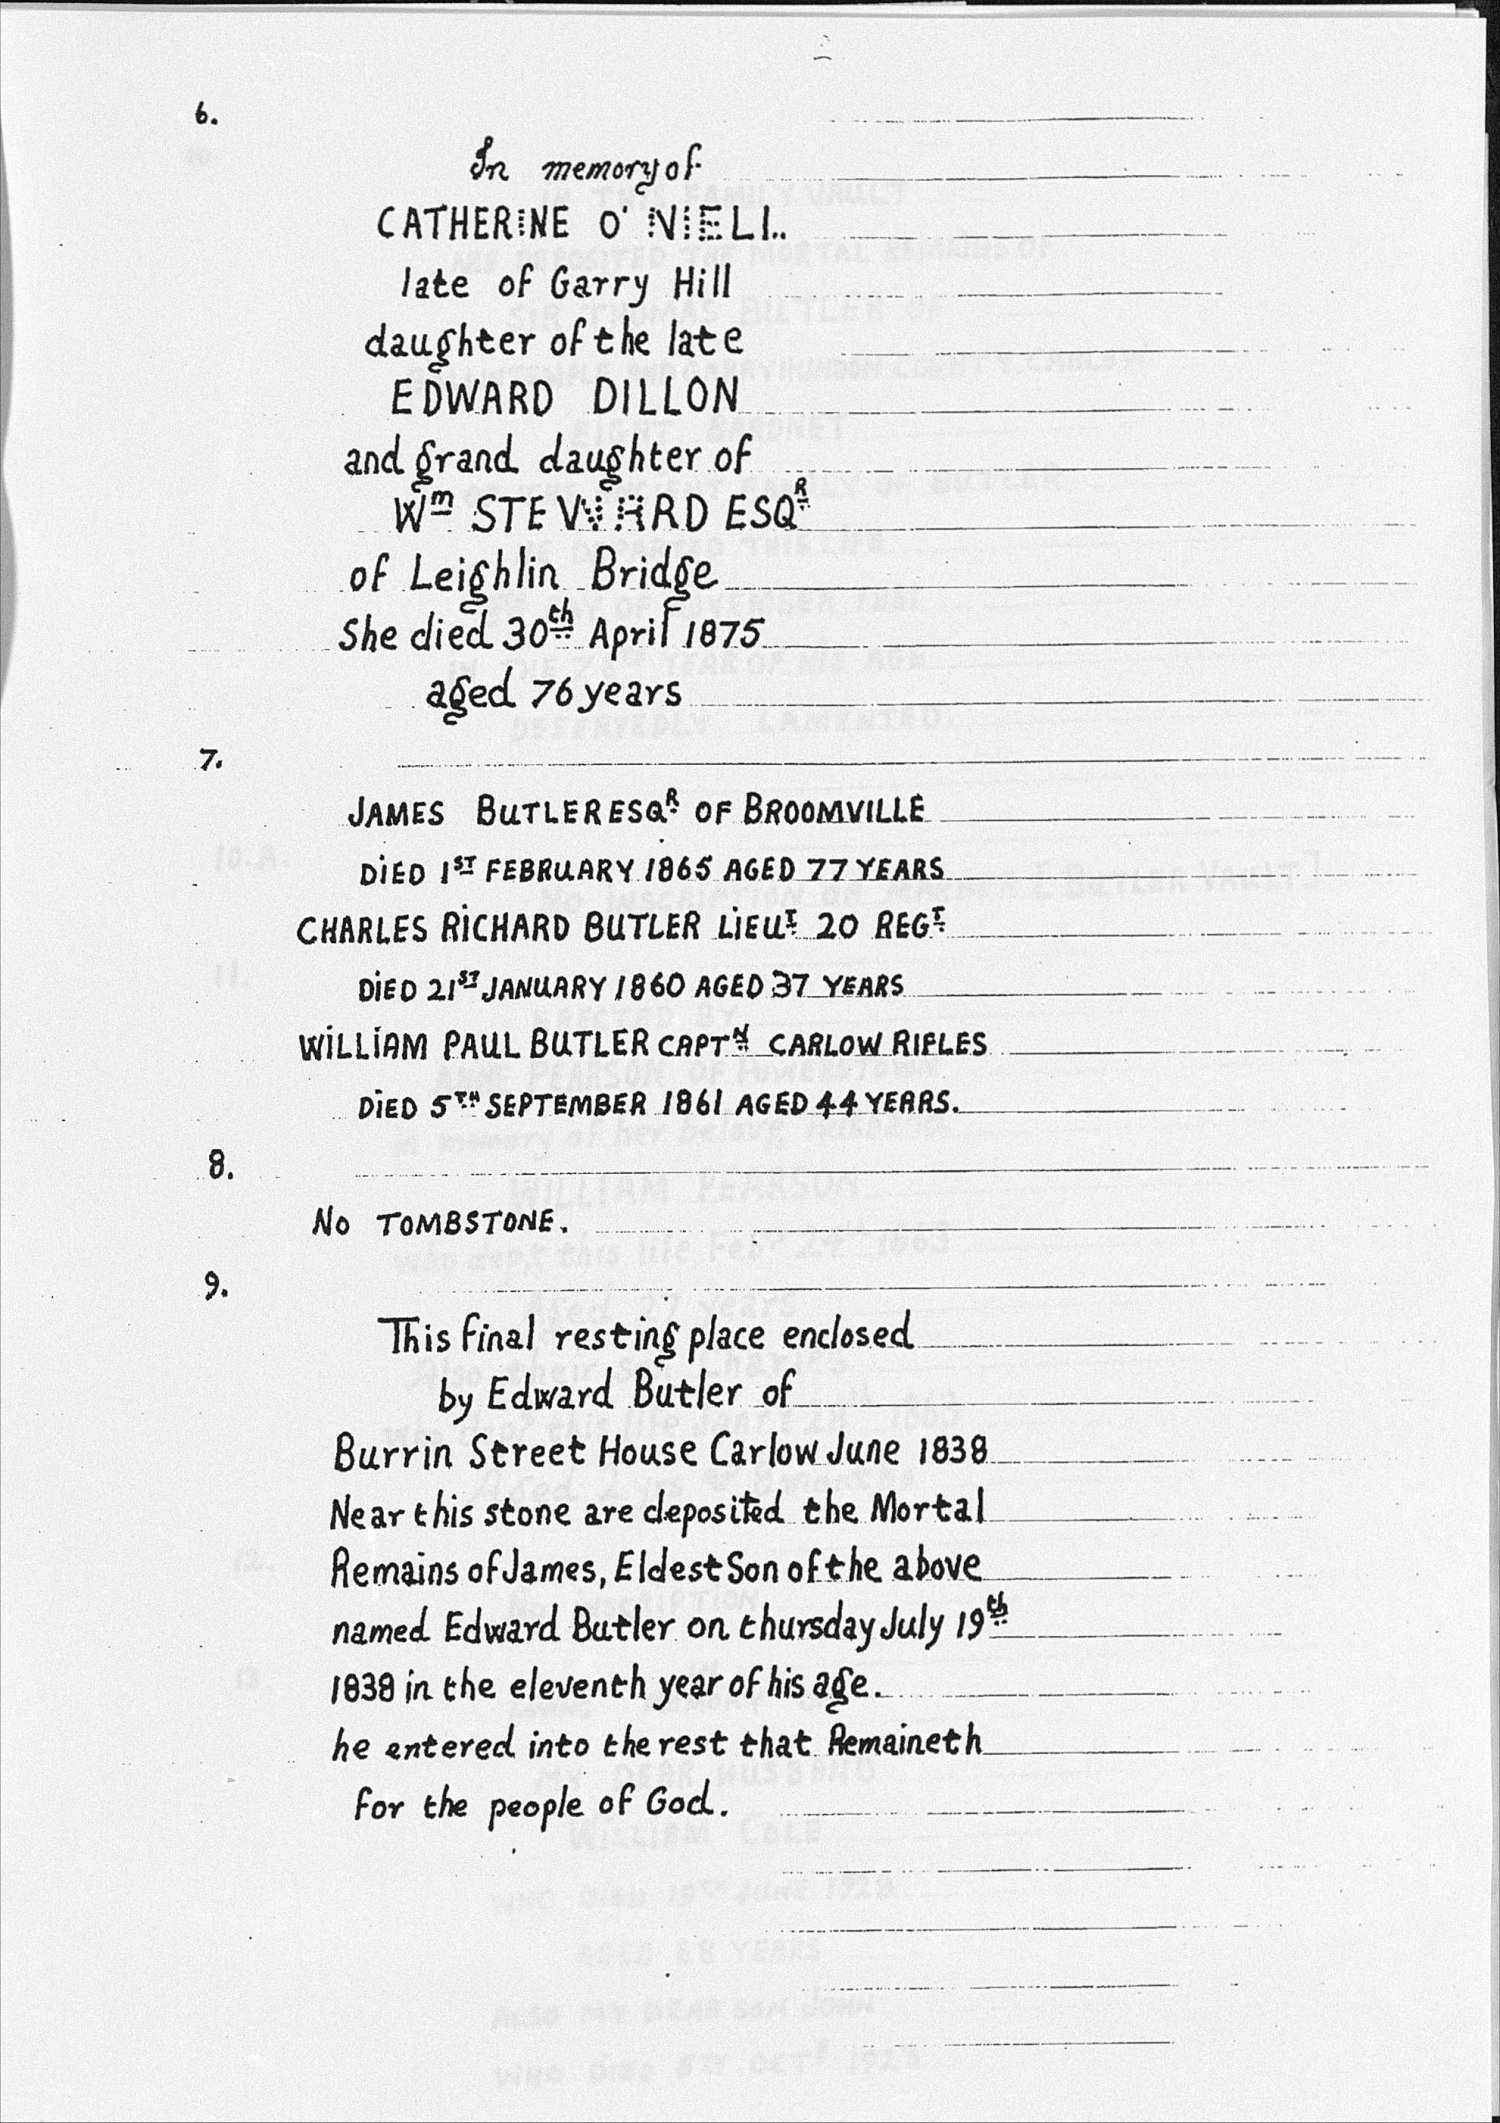 6.
In memory of
CATHERINE O'NIELL.
late of Garry Hill
daughter of the late
EDWARD DILLON
and grand daughter of
Wm STEWARD ESQR
of Leighlin Bridge
She died 30th April 1875
aged 76 years
7.
JAMES BUTLER ESQR OF BROOMVILLE
DIED 1ST FEBRUARY 1865 AGED 77 YEARS
CHARLES RICHARD BUTLER LIEUT 20 REGT
DIED 21ST JANUARY 1860 AGED 37 YEARS
WILLIAM PAUL BUTLER CAPTN CARLOW RIFLES
DIED 5TH SEPTEMBER 1861 AGED 44 YEARS.
8.
NO TOMBSTONE.
9.
This final resting place enclosed
by Edward Butler of
Burrin Street House Carlow June 1838
Near this stone are deposited the Mortal
Remains of James, Eldest Son of the above
named Edward Butler on thursday July 19th
1838 in the eleventh year of his age.
he entered into the rest that Remaineth
for the people of God.